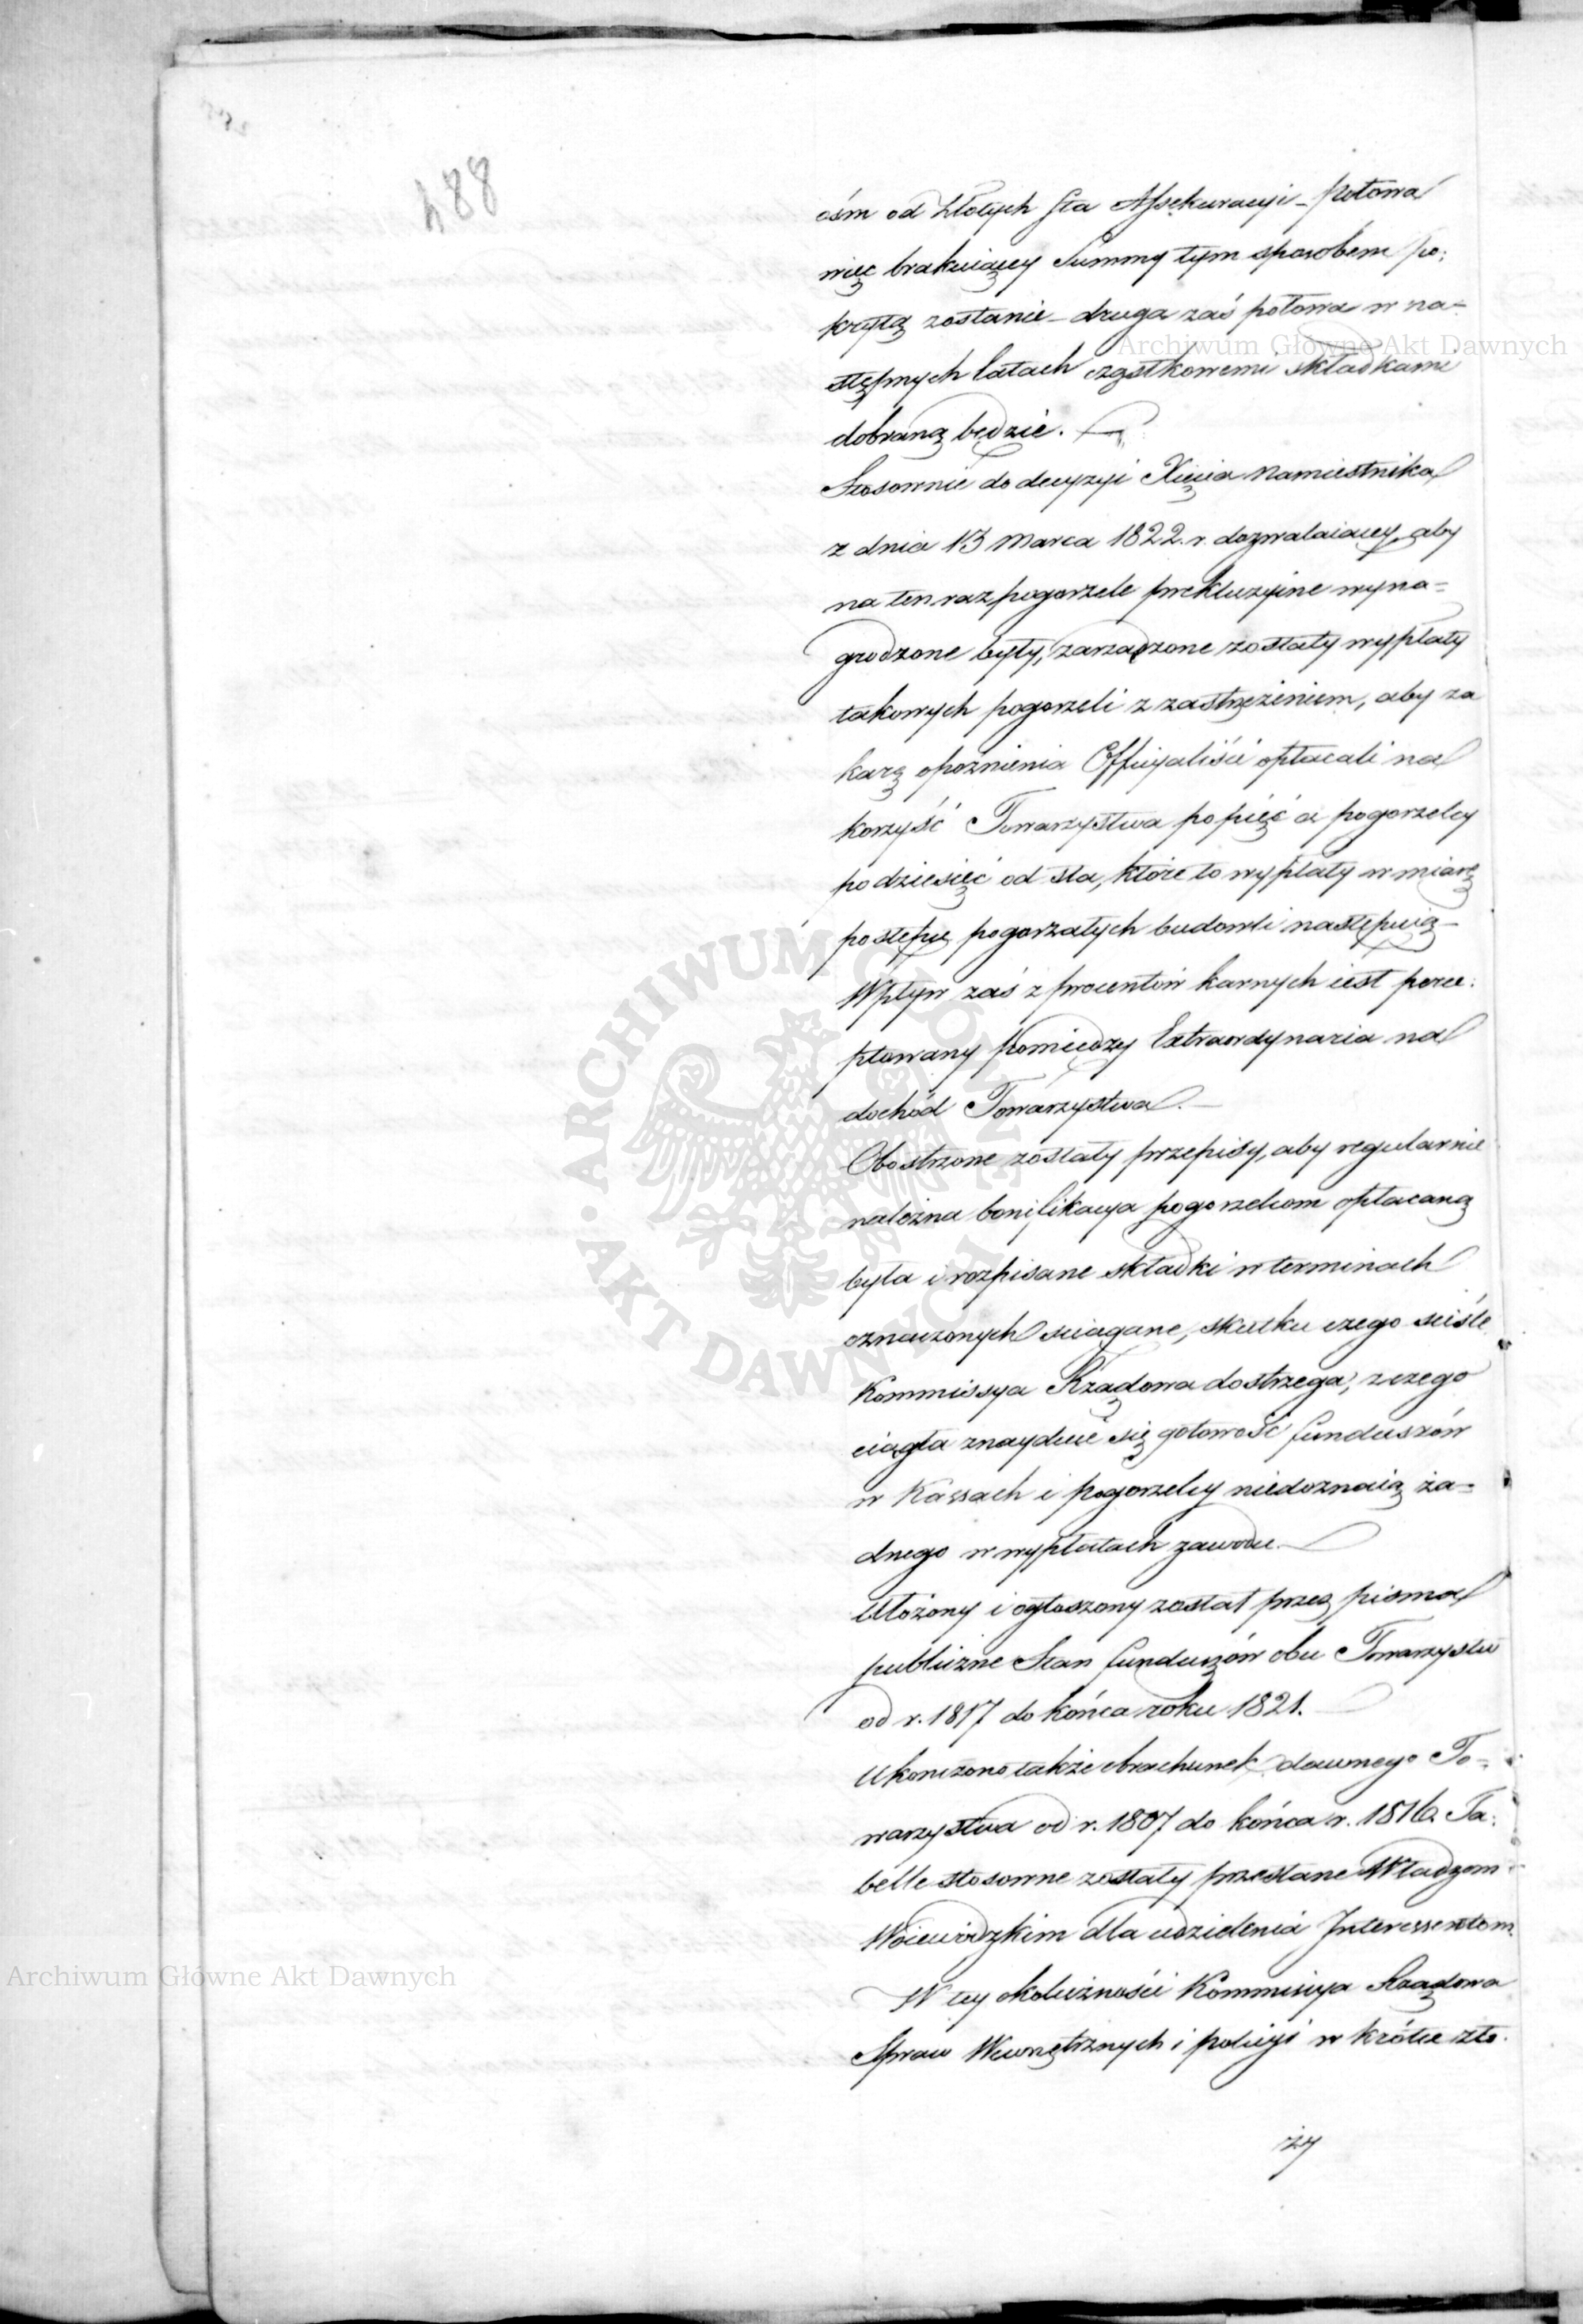 488
ośm od złotych sta Assekuracyi – Połowa
więc brakuiącey Summy tym sposobem po:
krytą zostanie – druga zaś połowa w na=
stępnych latach cząstkowemi składkami
dobraną będzie. –
Stosownie do decyzyi Xięcia Namiestnika
z dnia 13 Marca 1822. r. dozwalaiącey, aby
na ten raz pogorzele prekluzyine wyna=
grodzone były, zarządzone zostały wypłaty
takowych pogorzeli z zastrzeżeniem, aby za
karę opoznienia Officyaliści opłacali na
korzyść Towarzystwa po pięć a pogorzelcy
po dziesięć od sta, które to wypłaty w miarę
postępu pogorzałych budowli następuią –
Wpływ zaś z procentów karnych iest perce:
ptowany pomiędzy Extraordynaria na
dochód Towarzystwa. –
Obostrzone zostały przepisy, aby regularnie
należna bonifikacya pogorzelcom opłacaną
była i rozpisane składki w terminach
oznaczonych sciągane, skutku czego sciśle
Kommissya Rządowa dostrzega, z czego
ciągła znayduie się gotowość funduszów
w Kassach i pogorzelcy niedoznaią ża=
dnego w wypłatach zawodu. –
Ułożony i ogłoszony został przez pisma
publiczne Stan funduszów obu Towarzystw
od r. 1817 do końca roku 1821.
Ukonczono także obrachunek dawnego To=
warzystwa od r. 1807 do końca r. 1816. Ta:
belle stosowne zostały przesłane Władzom
Woiewódzkim dla udzielenia Interessentom.
W tey okoliczności Kommissya Rządowa
Spraw Wewnętrznych i policyi w krótce zło.
ży
Archiwum Główne Akt Dawnych
ARCHIWUM GŁÓWNE AKT DAWNYCH
Archiwum Główne Akt Dawnych